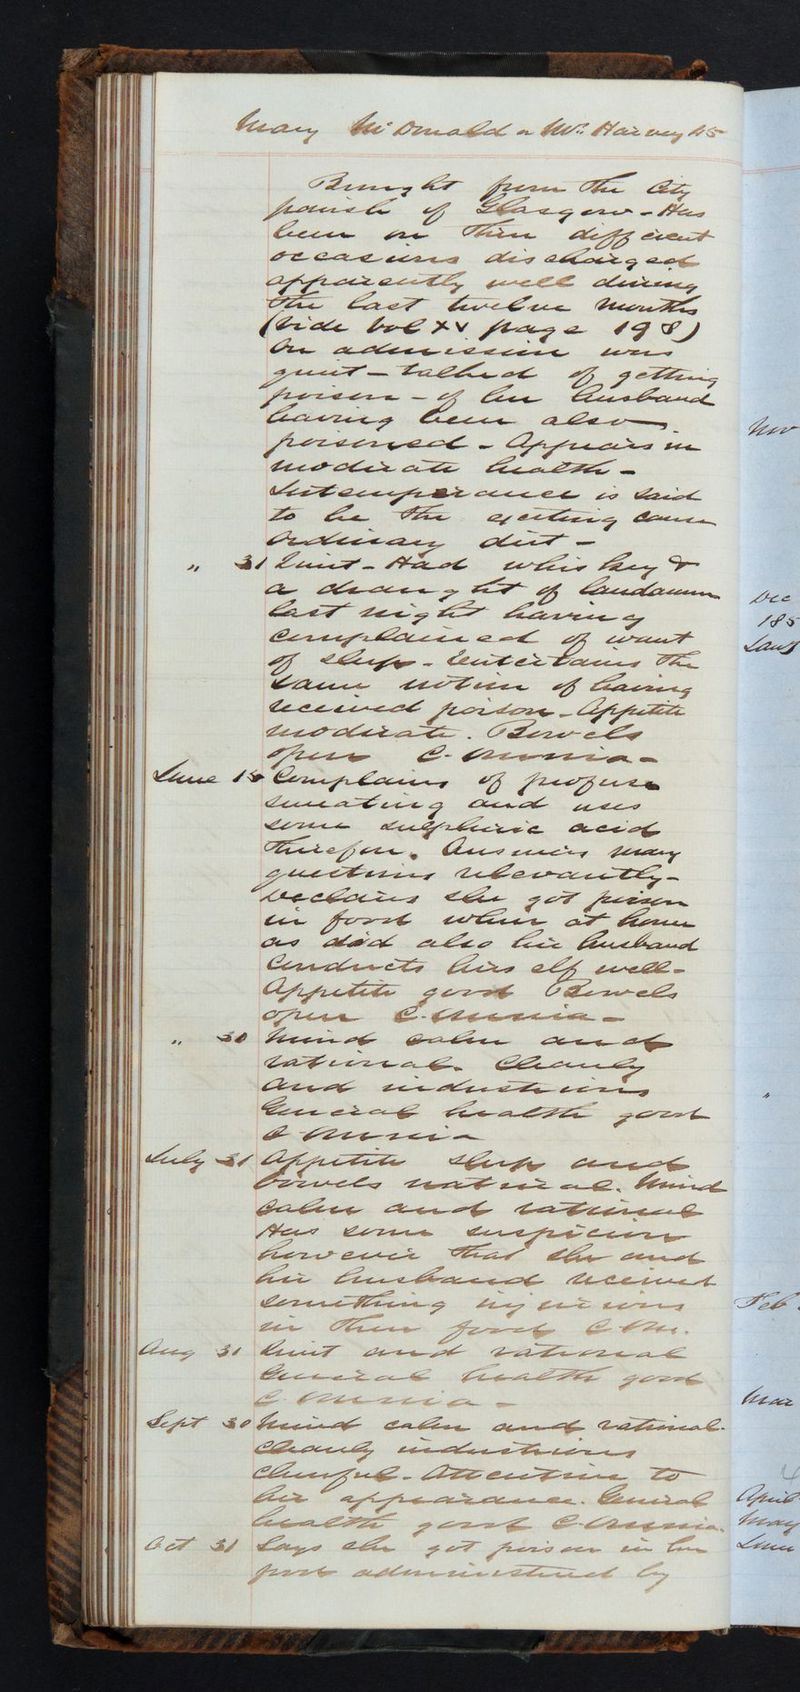 Mary McDonald or Mrs. Harvey 45
Brought from the City
parish of Glasgow - Has
been on three different
occasions discharged
apparently well during
the last twelve months
(vide vol XV page 198)
On admission was
quiet - talked of getting
poison - of her husband
having been also
poisoned - Appears in
moderate health -
Intemperance is said
to be the exciting cause
Ordinary diet -
" 31 Quiet - Had whiskey &
a draught of laudanum
last night having
complained of want
of sleep - Entertains the
same notion of having
received poison - Appetite
moderate. Bowels
open C. omnia -
June 15 Complains of profuse
sweating and uses
some sulphuric acid
therefor. Answers many
questions relevantly -
Declares she got poison
in food when at home
as did also her husband
Conducts herself well -
Appetite good Bowels
open C. omnia -
" 30 Mind calm and
rational. Cleanly
and industrious
General health good
C omnia
July 31 Appetite sleep and
bowels natural. Mind
calm and rational
Has some suspicion
however that she and
her husband received
something injurious
in their food C Om.
Aug 31 Quiet and rational
General health good
C omnia -
Sept 30 Mind calm and rational.
Cleanly industrious
cheerful - Attentive to
her appearance. General
health good C. omnia.
Oct 31 Says she got poison in her
food administered by
Nov
Dec
185
Jany
"
Feb
Mar
April
May
June